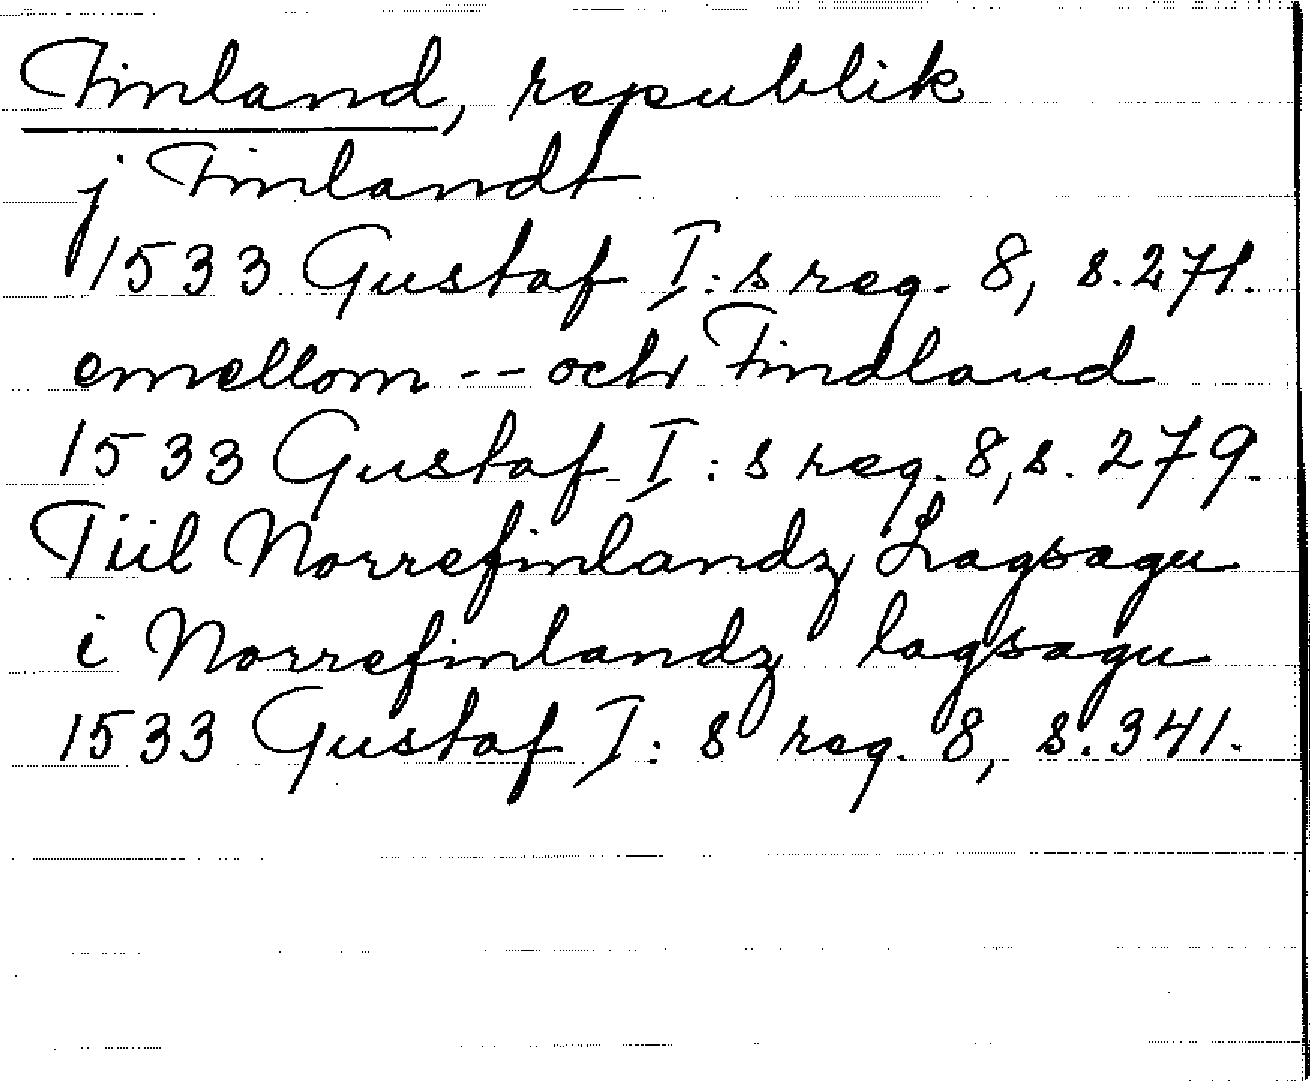 Finland, republik
j Finlandt
1533 Gustaf I:s reg. 8, s. 271.
emellom -- och Findland
1533 Gustaf I:s reg. 8, s. 279.
Tiil Norrefinlandz Lagsagu
i Norrefinlandz lagsagu
1533 Gustaf I:s reg. 8, s. 341.